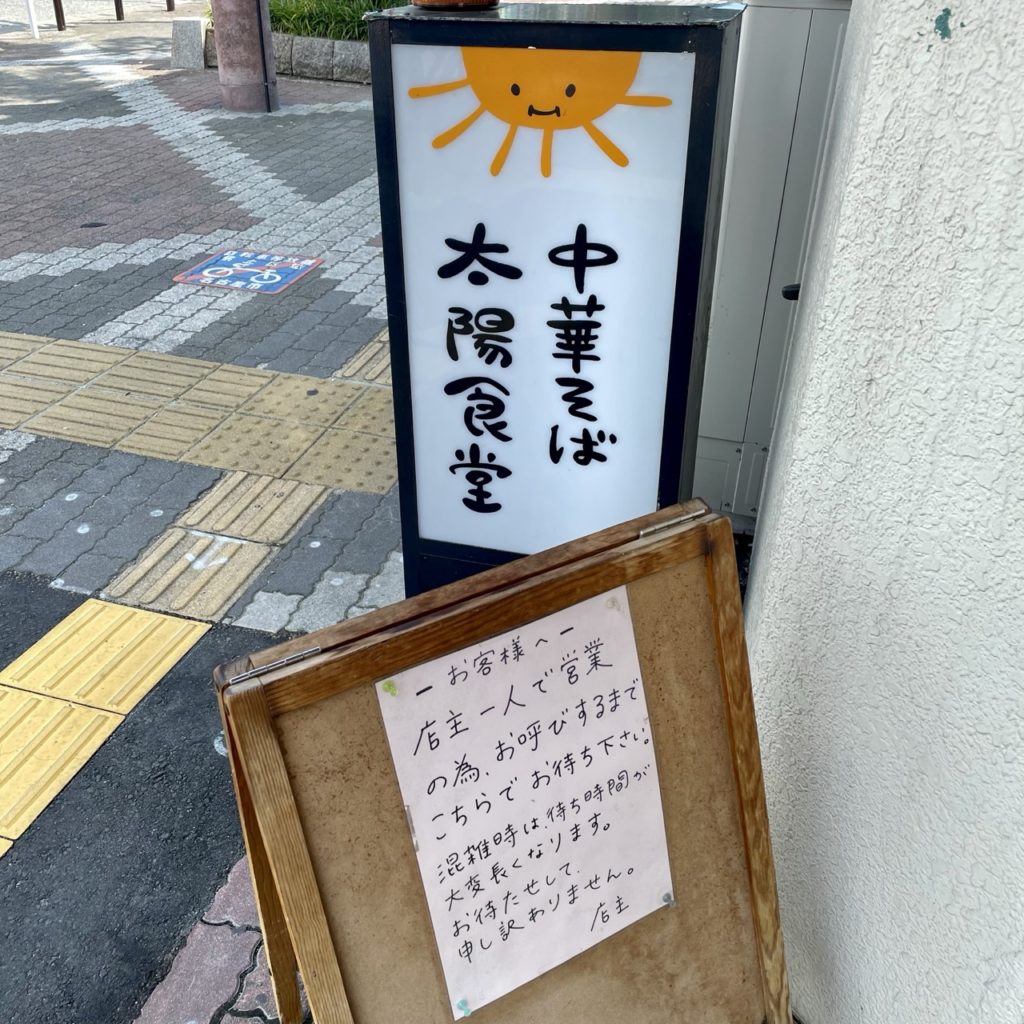 中華そば
太陽食堂
ーお客様へー
店主一人で営業
の為、お呼びするまで
こちらでお待ち下さい。
混雑時は、待ち時間が
大変長くなります。
お待たせして、
申し訳わりません。
店主